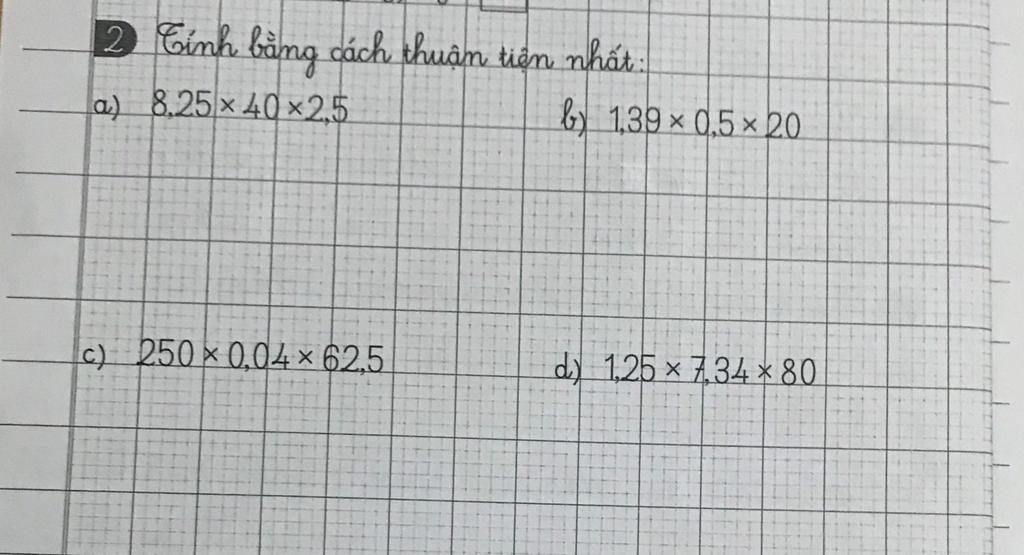 2 Tính bằng cách thuận tiện nhất:
a) 8,25 × 40 × 2,5
b) 1,39 × 0,5 × 20
c) 250 × 0,04 × 62,5
d) 1,25 × 7,34 × 80